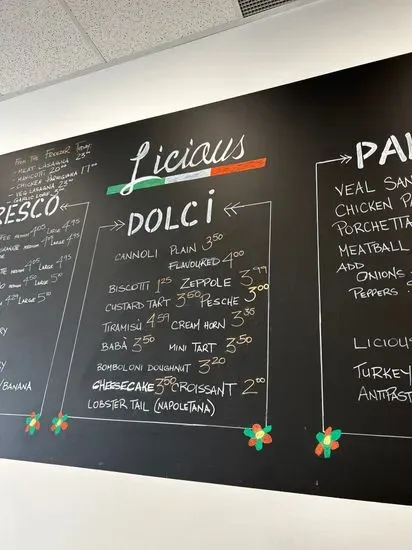 FROM THE FREEZER TODAY:
- MEAT LASAGNA 23
- MANICOTTI 20
- CHICKEN PARMIGIANA 17
- VEG LASAGNA 23
RESCO
LARGE 4.95
LARGE 4.95
LARGE 5
BANANA
Licious
DOLCi
CANNOLI PLAIN 3.50
FLAVOURED 4.00
BISCOTTI 1.25 ZEPPOLE 3.99
CUSTARD TART 3.50 PESCHE 3.00
TIRAMISÙ 4.59 CREAM HORN 3.35
BABÀ 3.50 MINI TART 3.50
BOMBOLONI DOUGHNUT 3.20
CHEESECAKE 3.50 CROISSANT 2.00
LOBSTER TAIL (NAPOLETANA)
PAN
VEAL SAN
CHICKEN PA
PORCHETTA
MEATBALL
ADD
ONIONS
PEPPERS
LICIOU
TURKEY
ANTIPAST